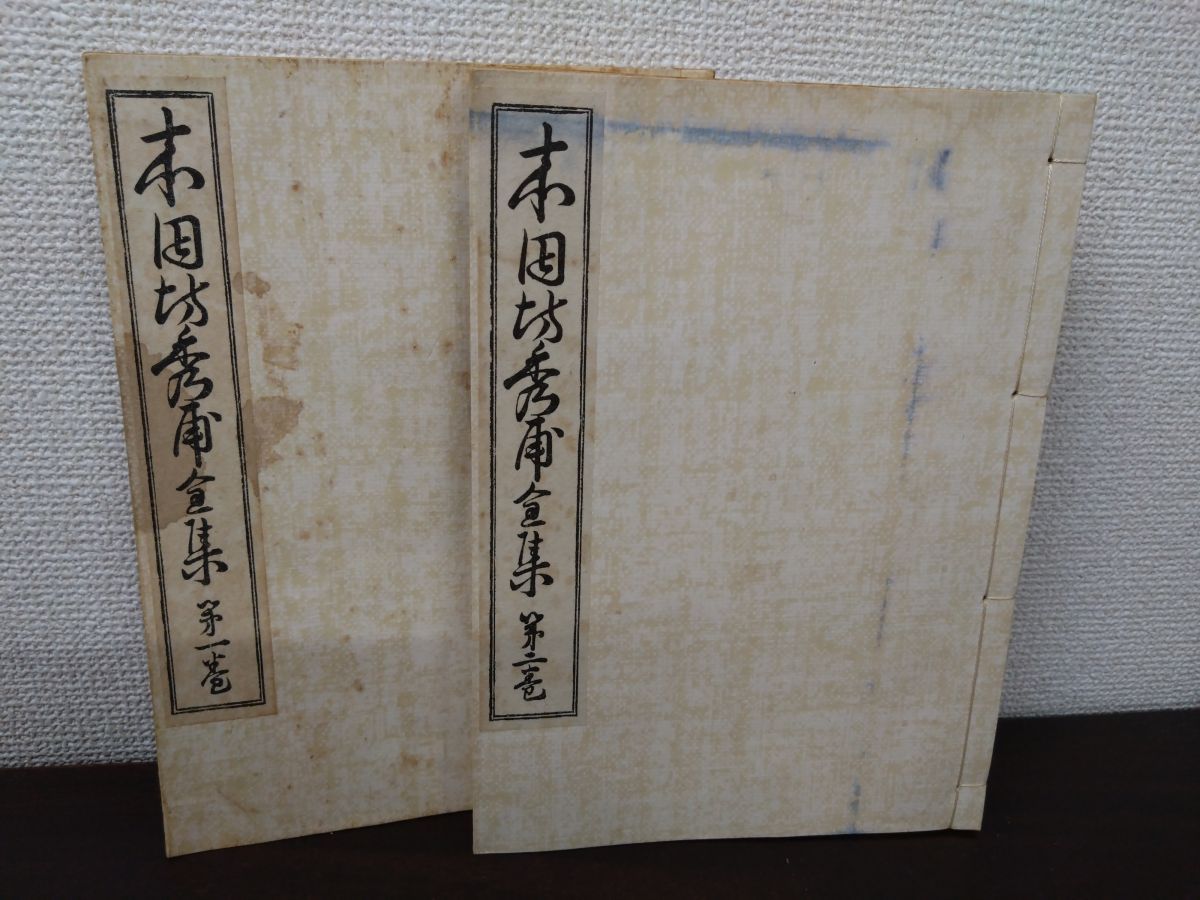 本因坊秀甫全集 第一巻
本因坊秀甫全集 第二巻